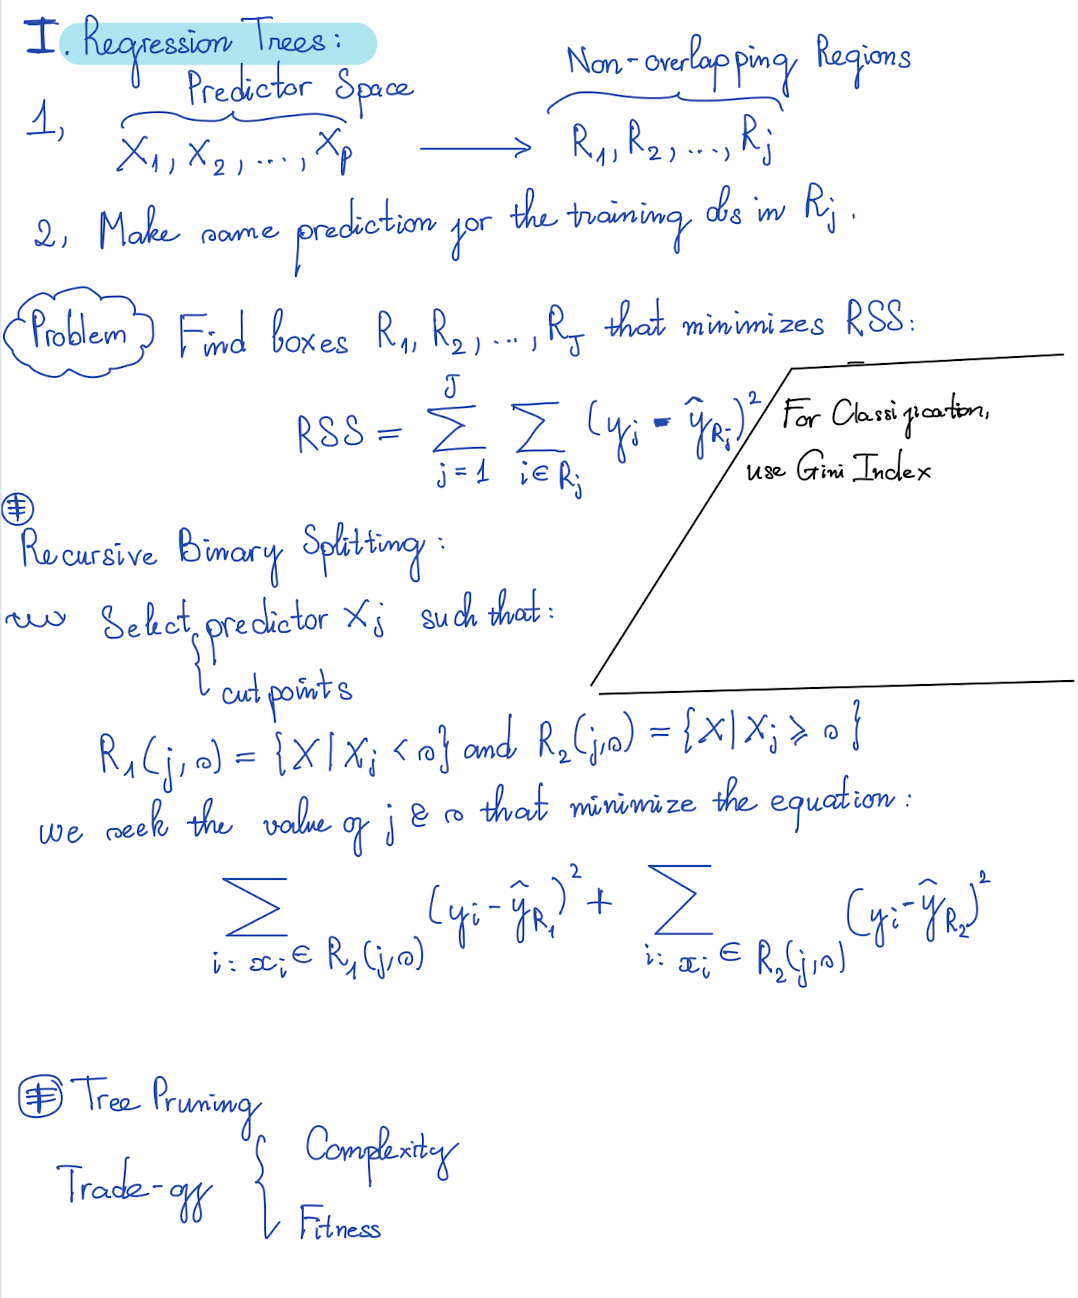 I. Regression Trees:
Predictor Space
Non-overlapping Regions
1, X₁, X₂, ..., Xₚ ⟶ R₁, R₂, ..., Rⱼ
2, Make same prediction for the training obs in Rⱼ.
Problem Find boxes R₁, R₂, ..., R_J that minimizes RSS:
RSS = Σ_{j=1}^{J} Σ_{i∈Rⱼ} (yᵢ - ŷ_{Rⱼ})²
For Classification,
use Gini Index
Recursive Binary Splitting:
Select { predictor Xⱼ such that:
cutpoint s
R₁(j,s) = {X | Xⱼ < s} and R₂(j,s) = {X | Xⱼ ⩾ s}
we seek the value of j & s that minimize the equation:
Σ_{i: xᵢ ∈ R₁(j,s)} (yᵢ - ŷ_{R₁})² + Σ_{i: xᵢ ∈ R₂(j,s)} (yᵢ - ŷ_{R₂})²
Tree Pruning
Trade-off { Complexity
Fitness